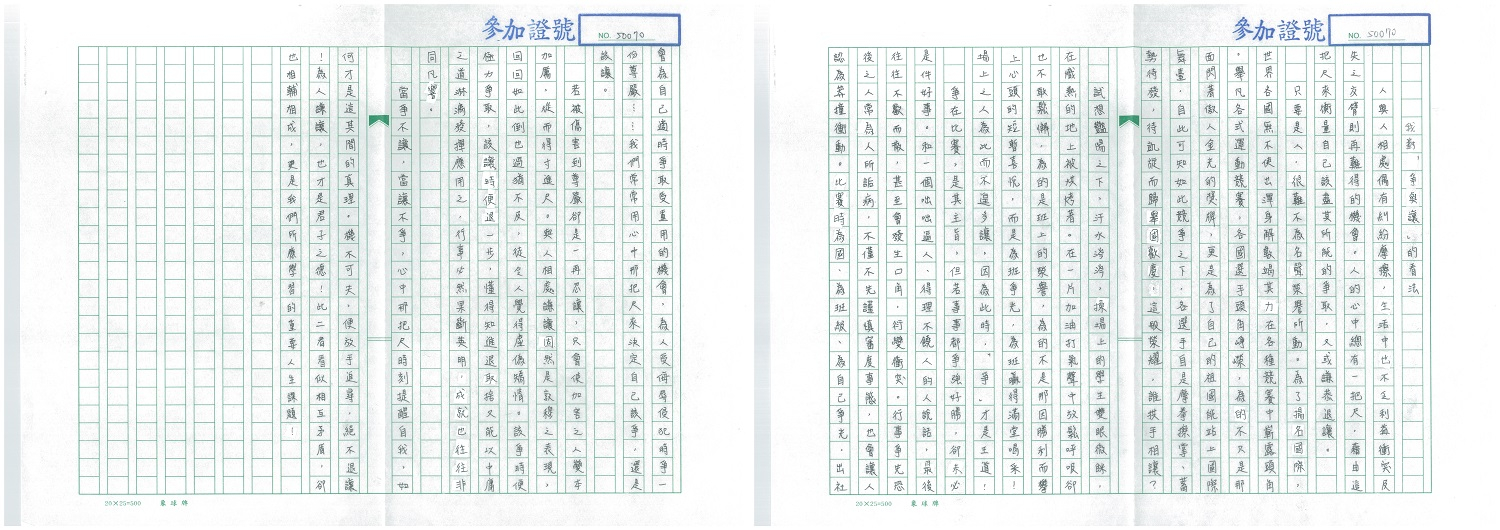 參加證號
NO. 50070
我對「爭與讓」的看法
人與人相處偶有糾紛摩擦,生活中也不乏利益衝突及
失之交臂則再難得的機會。人的心中總有一把尺,藉由這
把尺來衡量自己該盡其所能的爭取,又或謙恭退讓。
只要是人,很難不為名聲榮譽所動。為了揚名國際,
世界各國無不使出渾身解數竭其力在各種競賽中嶄露頭角
。舉凡各式運動競賽,各國選手頭角崢嶸,為的不又是那
面閃著傲人金光的獎牌,更是為了自己的祖國能站上國際
舞臺,自此可知如此競爭之下,各選手自是摩拳擦掌、蓄
勢待發,待凱旋而歸舉國歡慶,這般榮耀,誰拱手相讓?
試想豔陽之下,汗水涔涔,操場上的學生雙眼微瞇,
在熾熱的地上被烘烤著。在一片加油打氣聲中放鬆呼吸卻
也不敢鬆懈,為的是班上的榮譽,為的不是那因勝利而襲
上心頭的短暫喜悅,而是為班爭光,為班贏得滿堂喝采!
場上之人為此而不遑多讓,因為此時,「爭」才是王道!
爭在比賽,是其主旨,但若事事都爭強好勝,卻未必
是件好事。和一個咄咄逼人、得理不饒人的人說話,最後
往往不歡而散,甚至會發生口角,衍變衝突。行事爭先恐
後之人常為人所詬病,不僅不先謹慎審度事態,也會讓人
認為莽撞衝動。比賽時為國、為班級、為自己爭光,出社
20×25=500 象球牌
參加證號
NO. 50070
會為自己適時爭取受重用的機會,為人受侮辱使

時爭一
份尊嚴……我們常常用心中那把尺來決定自己該爭,還是
該讓。
若被傷害到尊嚴卻是一再忍讓,只會使加害之人變本
加厲,從而得寸進尺。與人相處謙讓固然是敦穆之表現,
回回如此倒也過猶不及,徒令人覺得虛偽矯情。該爭時便
極力爭取,該讓時便退一步,懂得知進退取捨又能以中庸
之道淋漓發揮應用之,行事必然果斷英明,成就也往往非
同凡響。
當爭不讓,當讓不爭,心中那把尺時刻提醒自我,如
何才是這其間的真理。機不可失,便放手追尋,絕不退讓
!為人謙讓,也才是君子之德!此二者看似相互矛盾,卻
也相輔相成,更是我們所應學習的重要人生課題!
20×25=500 象球牌